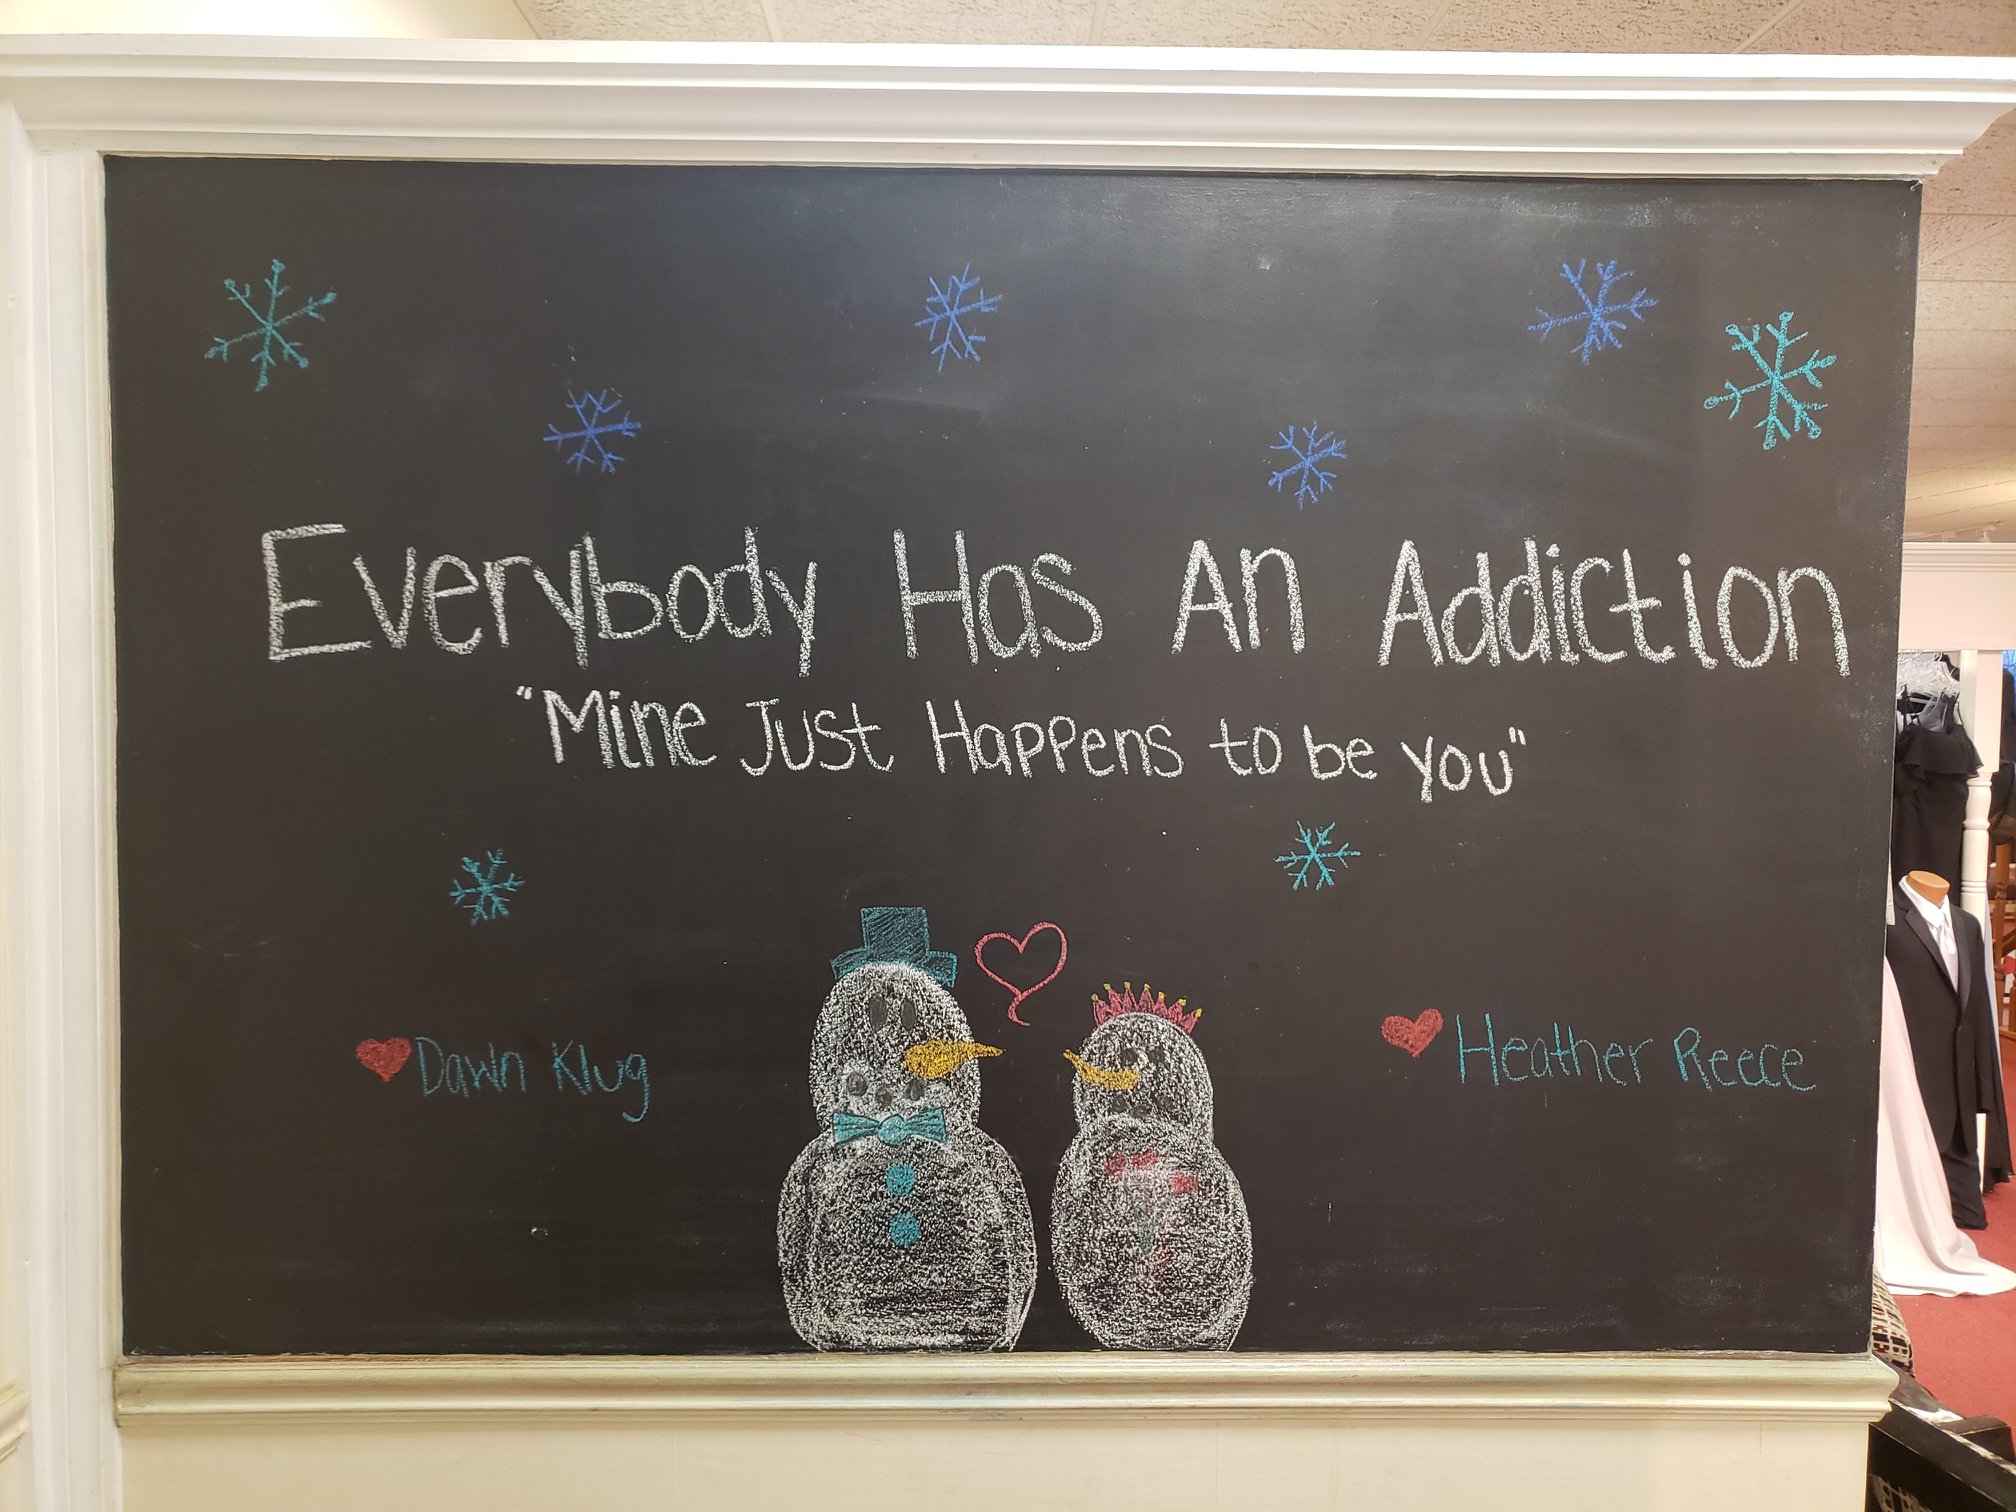 Everybody Has An Addiction
"Mine Just Happens to be you"
Dawn Klug
Heather Reece